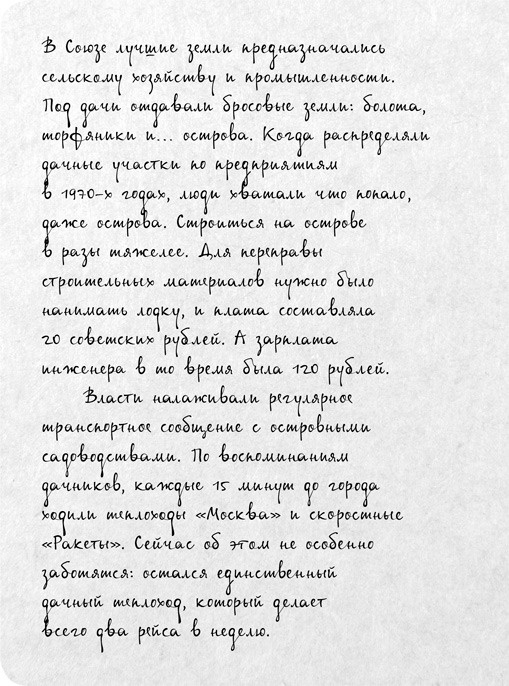 В Союзе лучшие земли предназначались
сельскому хозяйству и промышленности.
Под дачи отдавали бросовые земли: болота,
торфяники и... острова. Когда распределяли
дачные участки по предприятиям
в 1970-х годах, люди хватали что попало,
даже острова. Строиться на острове
в разы тяжелее. Для переправы
строительных материалов нужно было
нанимать лодку, и плата составляла
20 советских рублей. А зарплата
инженера в то время была 120 рублей.
Власти налаживали регулярное
транспортное сообщение с островными
садоводствами. По воспоминаниям
дачников, каждые 15 минут до города
ходили теплоходы «Москва» и скоростные
«Ракеты». Сейчас об этом не особенно
заботятся: остался единственный
дачный теплоход, который делает
всего два рейса в неделю.